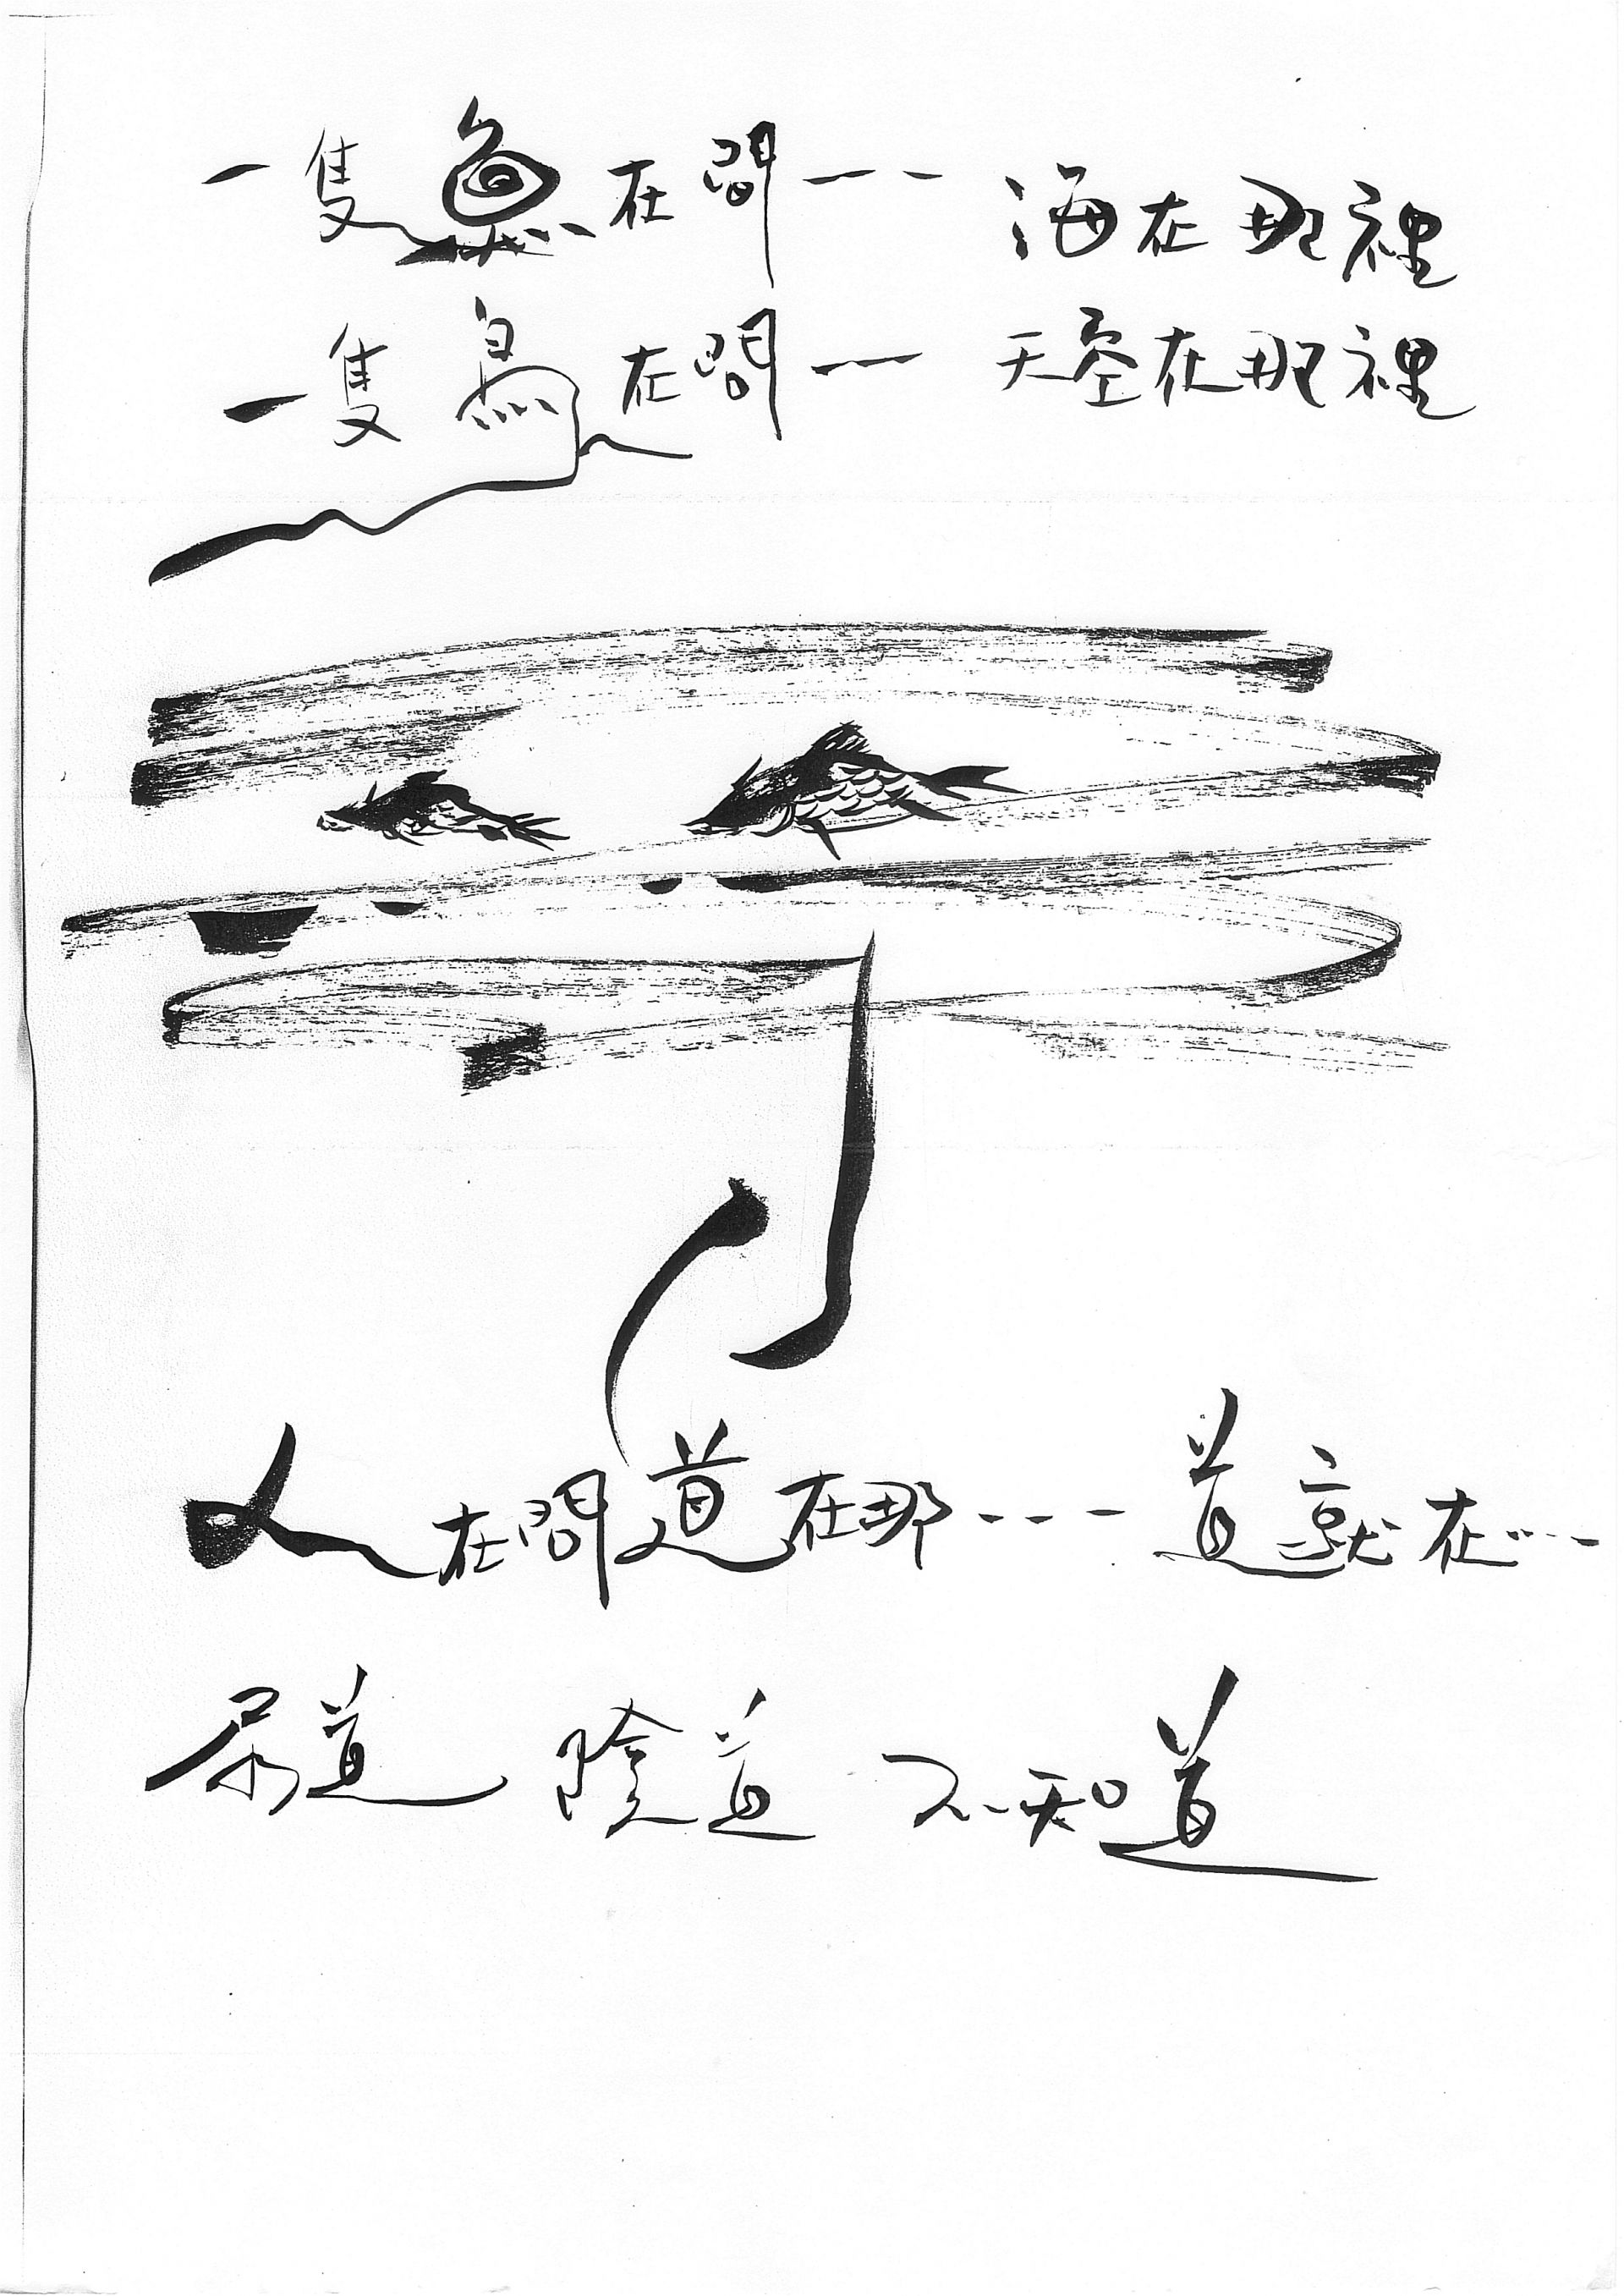 一隻魚在問--- 海在那裡
一隻鳥在問-- 天空在那裡
人在問道在那--- 道就在……
尿道 陰道 不知道